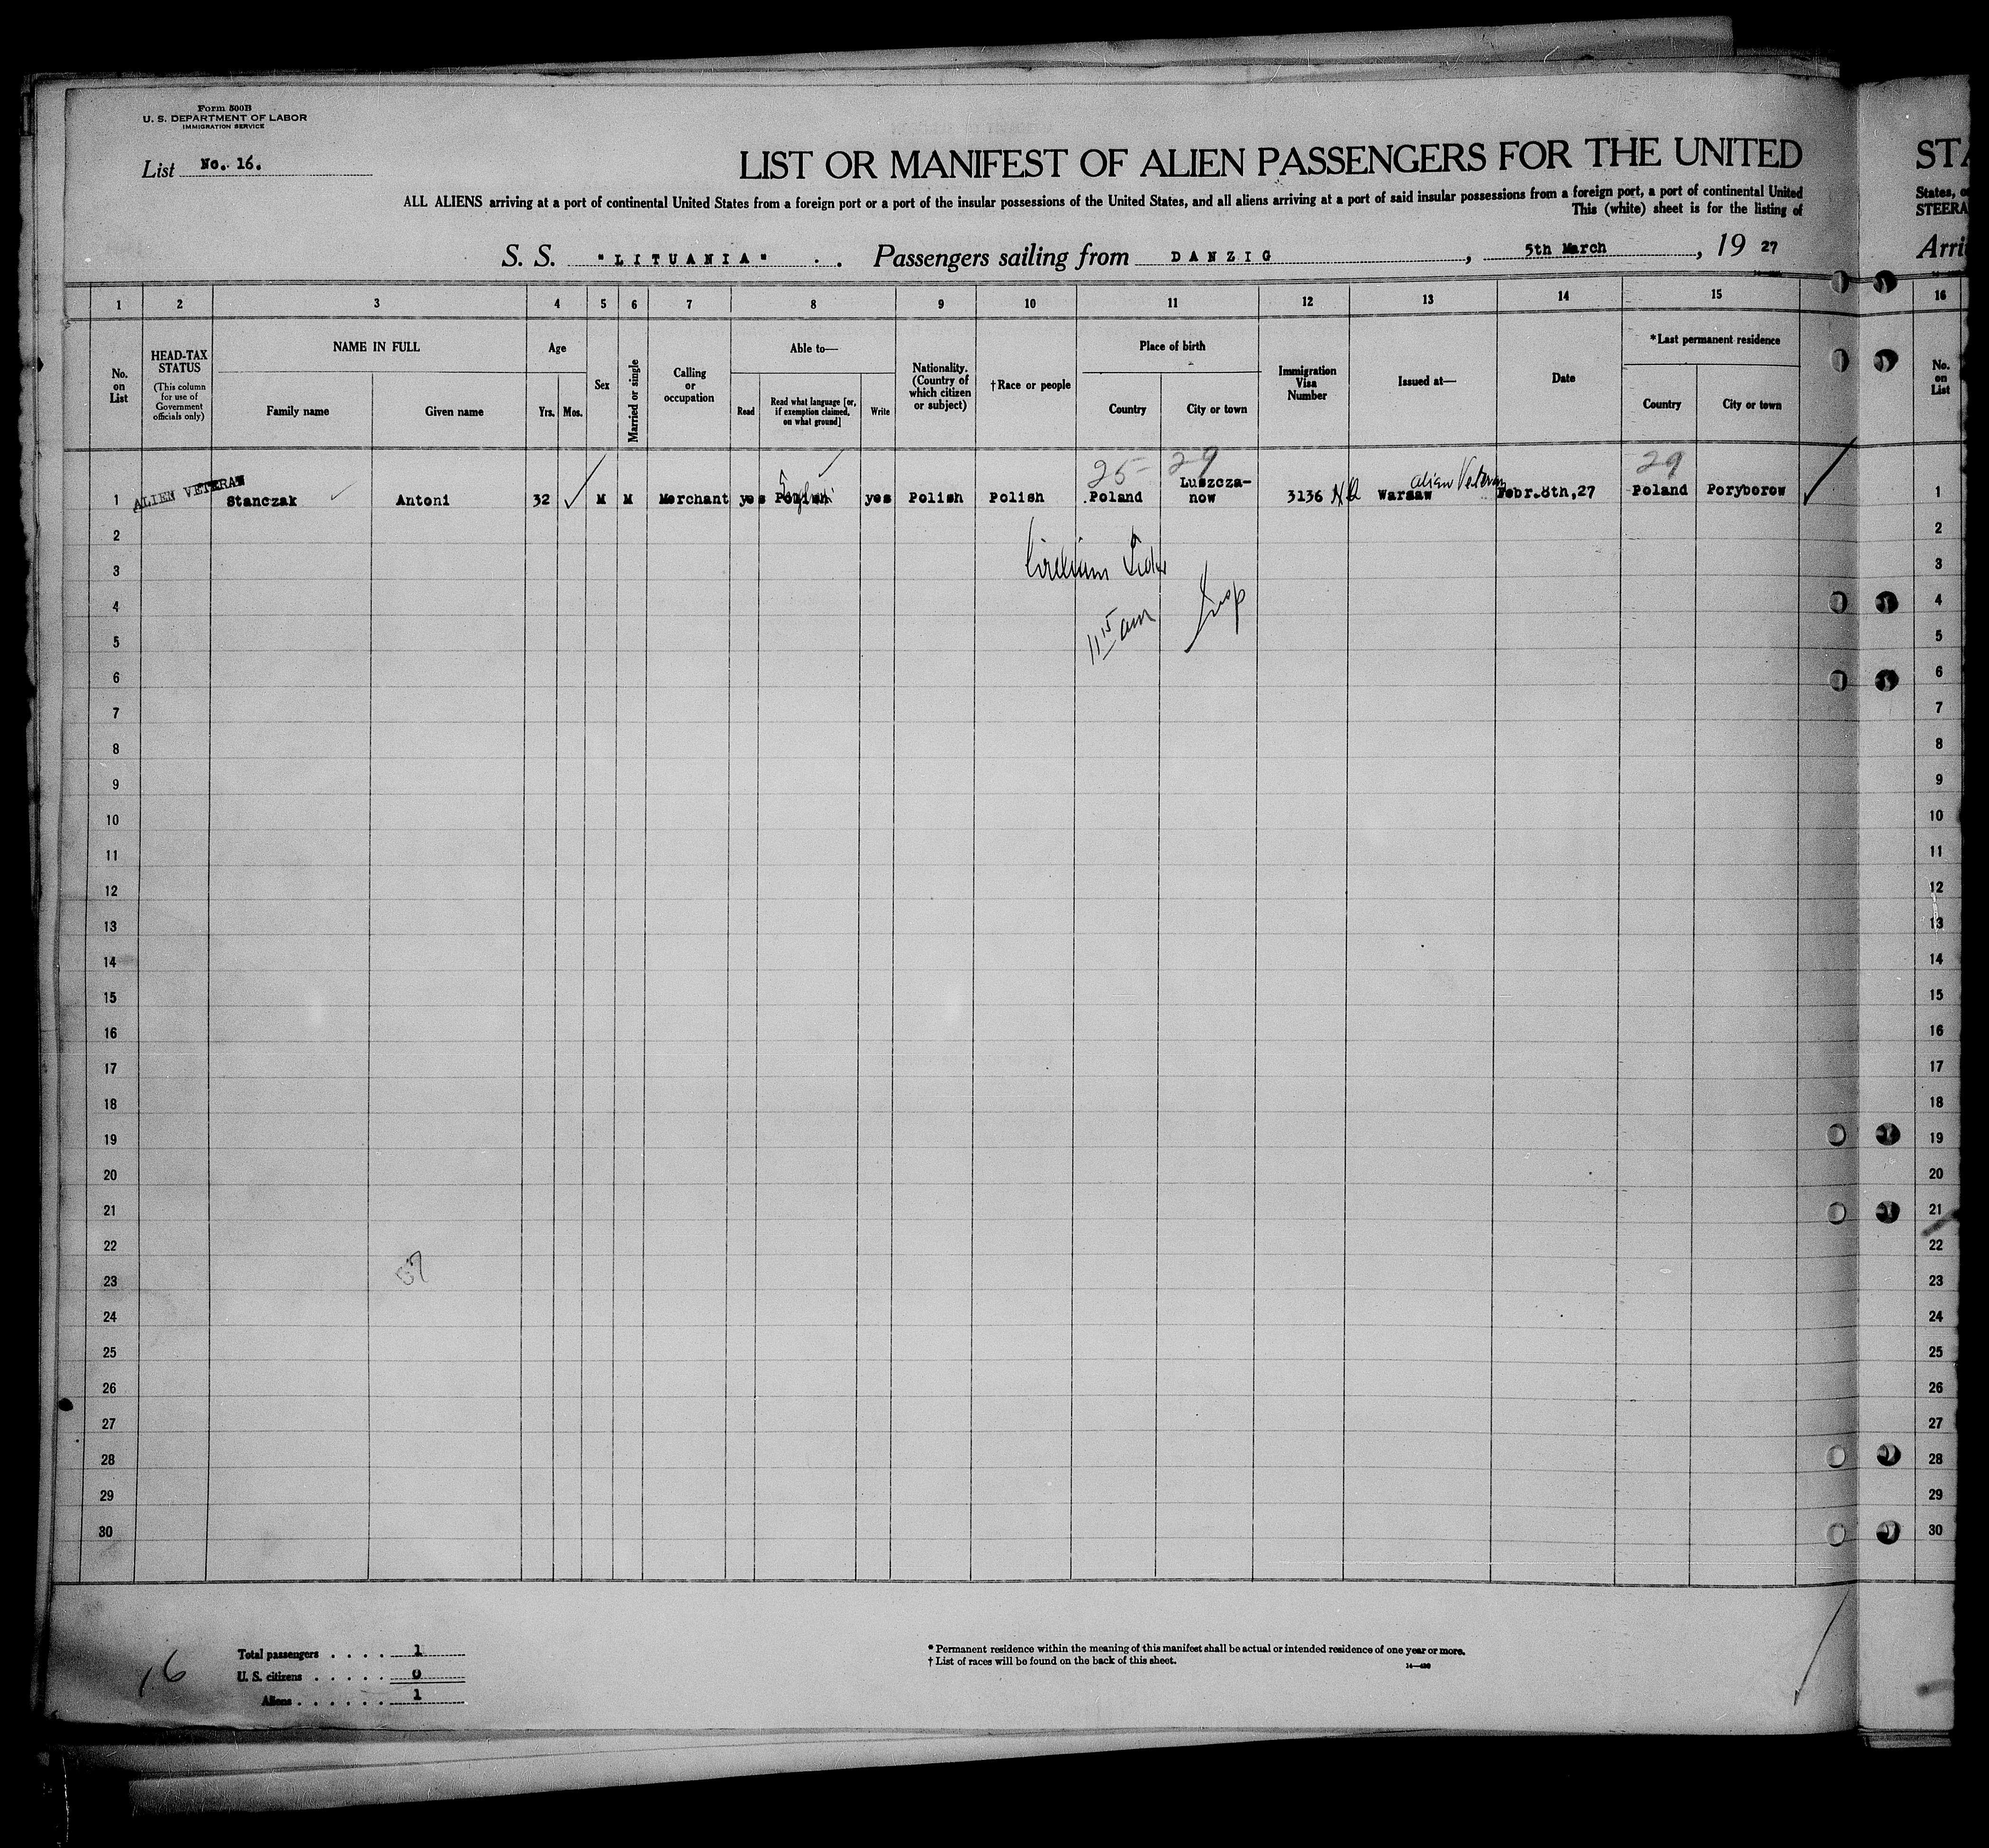 Form 500B
U. S. DEPARTMENT OF LABOR
IMMIGRATION SERVICE
List No. 16.
LIST OR MANIFEST OF ALIEN PASSENGERS FOR THE UNITED
ALL ALIENS arriving at a port of continental United States from a foreign port or a port of the insular possessions of the United States, and all aliens arriving at a port of said insular possessions from a foreign port, a port of continental United
This (white) sheet is for the listing of
S. S. "LITUANIA" Passengers sailing from DANZIG, 5th March, 19 27
STA
States, o
STEERA
Arri
1 2 3 4 5 6 7 8 9 10 11 12 13 14 15 16
No. on List
HEAD-TAX STATUS
(This column for use of Government officials only)
NAME IN FULL
Family name
Given name
Age
Yrs.
Mos.
Sex
Married or single
Calling or occupation
Able to—
Read
Read what language [or, if exemption claimed, on what ground]
Write
Nationality. (Country of which citizen or subject)
†Race or people
Place of birth
Country
City or town
Immigration Visa Number
Issued at—
Date
*Last permanent residence
Country
City or town
No. on List
25 29 29
1 ALIEN VETERAN Stanczak Antoni 32 M M Merchant yes Polish English yes Polish Polish Poland Luszcza-now 3136 NQ Warsaw alien Veteran Febr.8th,27 Poland Poryborow 1
2 2
3 3
4 4
11 15 am Insp
5 5
6 6
7 7
8 8
9 9
10 10
11 11
12 12
13 13
14 14
15 15
16 16
17 17
18 18
19 19
20 20
21 21
22 22
23 23
24 24
25 25
26 26
27 27
28 28
29 29
30 30
16
Total passengers . . . . 1
U. S. citizens . . . . . 0
Aliens . . . . . . 1
* Permanent residence within the meaning of this manifest shall be actual or intended residence of one year or more.
† List of races will be found on the back of this sheet.